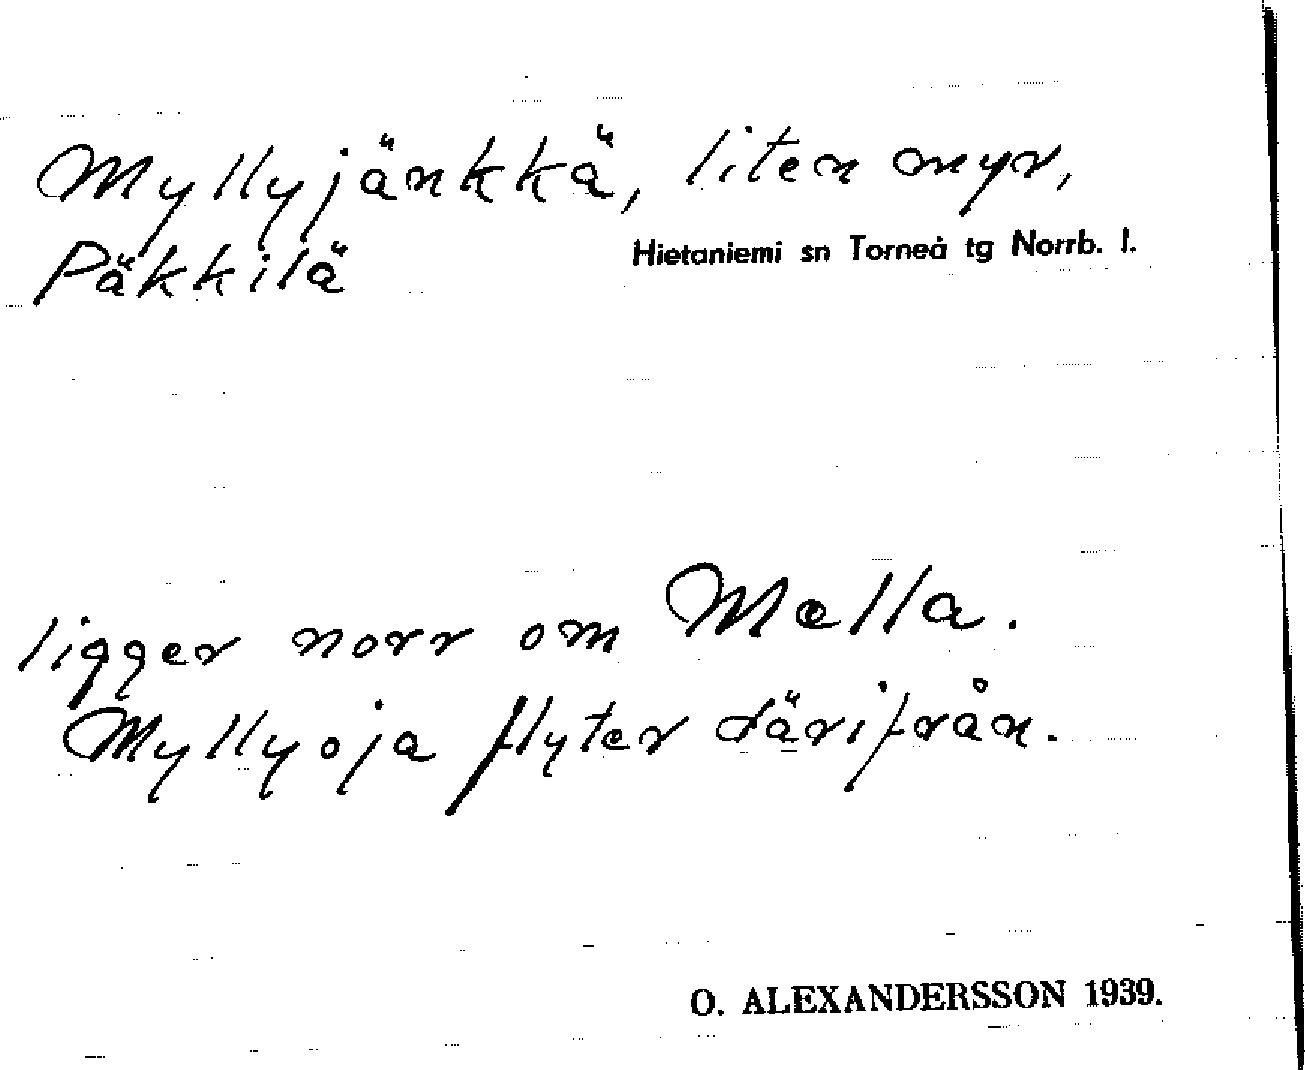 Myllyjänkkä, liten myr,
Päkkilä
Hietaniemi sn Torneå tg Norrb. l.
ligger norr om Mella.
Myllyoja flyter därifrån.
O. ALEXANDERSSON 1939.